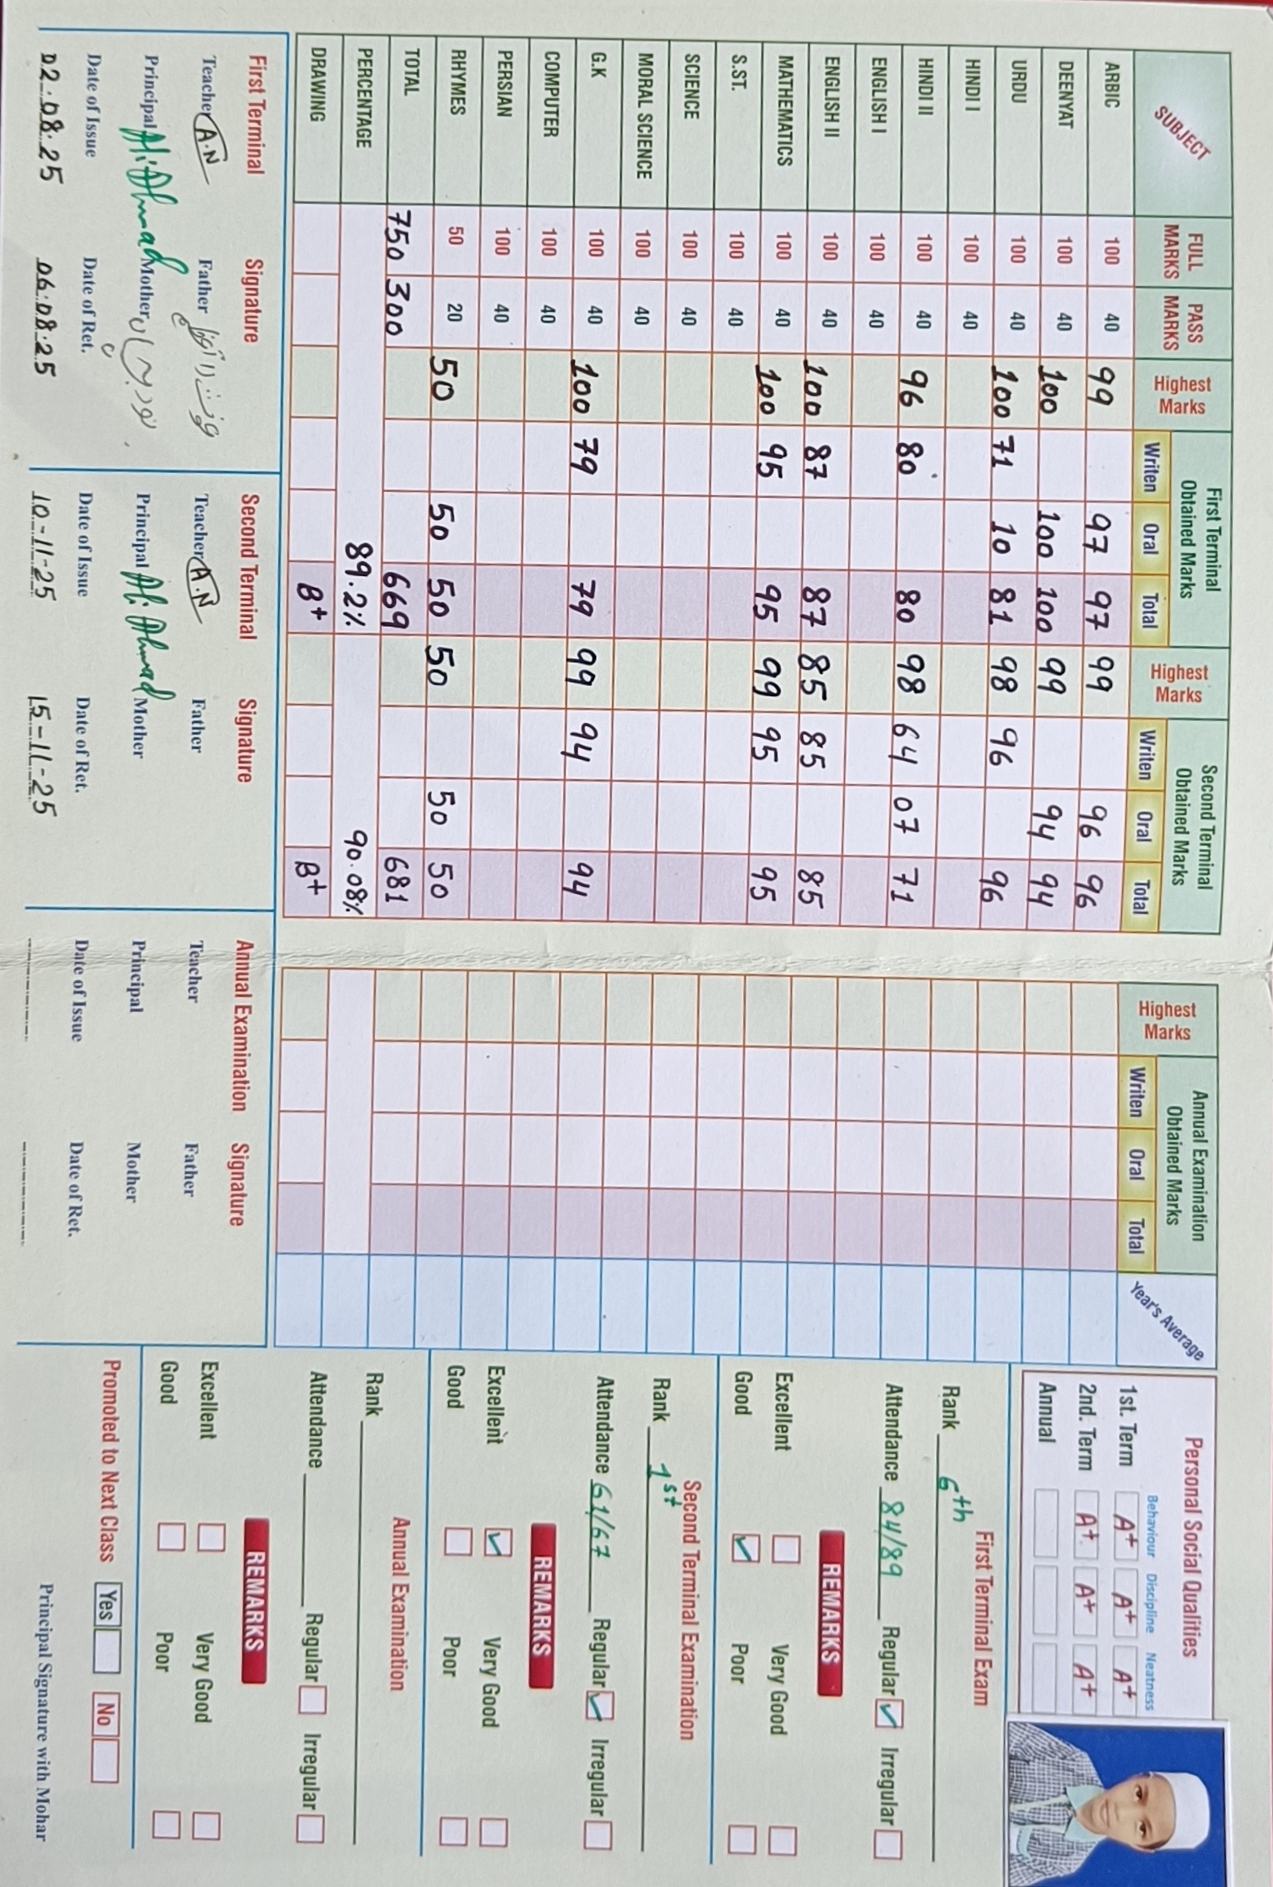 SUBJECT FULL MARKS PASS MARKS Highest Marks First Terminal Obtained Marks Writen Oral Total Highest Marks Second Terminal Obtained Marks Writen Oral Total Highest Marks Annual Examination Obtained Marks Writen Oral Total Year's Average
ARBIC 100 40 99 97 97 99 96 96
DEENYAT 100 40 100 100 100 99 94 94
URDU 100 40 100 71 10 81 98 96 96
HINDI I 100 40
HINDI II 100 40 96 80 80 98 64 07 71
ENGLISH I 100 40
ENGLISH II 100 40 100 87 87 85 85 85
MATHEMATICS 100 40 100 95 95 99 95 95
S.ST. 100 40
SCIENCE 100 40
MORAL SCIENCE 100 40
G.K 100 40 100 79 79 99 94 94
COMPUTER 100 40
PERSIAN 100 40
RHYMES 50 20 50 50 50 50 50 50
TOTAL 750 300 669 681
PERCENTAGE 89.2% 90.08%
DRAWING B+ B+
First Terminal Signature
Teacher A.N Father
Principal Ali Ahmad Mother
Date of Issue Date of Ret.
02.08.25 06.08.25
Second Terminal Signature
Teacher A.N Father
Principal Ali Ahmad Mother
Date of Issue Date of Ret.
10-11-25 15-11-25
Annual Examination Signature
Teacher Father
Principal Mother
Date of Issue Date of Ret.
Personal Social Qualities
Behaviour Discipline Neatness
1st. Term A+ A+ A+
2nd. Term A+ A+ A+
Annual
First Terminal Exam
Rank 6th
Attendance 84/89 Regular Irregular
REMARKS
Excellent Very Good
Good Poor
Second Terminal Examination
Rank 1st
Attendance 61/67 Regular Irregular
REMARKS
Excellent Very Good
Good Poor
Annual Examination
Rank
Attendance Regular Irregular
REMARKS
Excellent Very Good
Good Poor
Promoted to Next Class Yes No
Principal Signature with Mohar